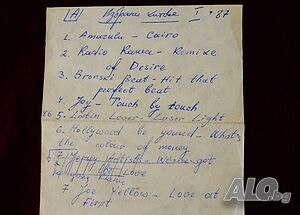 A Избрани диско I • 87
1. Amazulu - Cairo
2. Radio Rama - Remixe
of Desire
3. Bronski Beat - Hit that
perfect beat
4. Joy - Touch by touch
86 5. Latin Lover - Laser Light
6. Hollywood be youed - What's
the colour of money
Artists - We've got
Love
7. Joe Yellow - Love at
First
ALO.bg